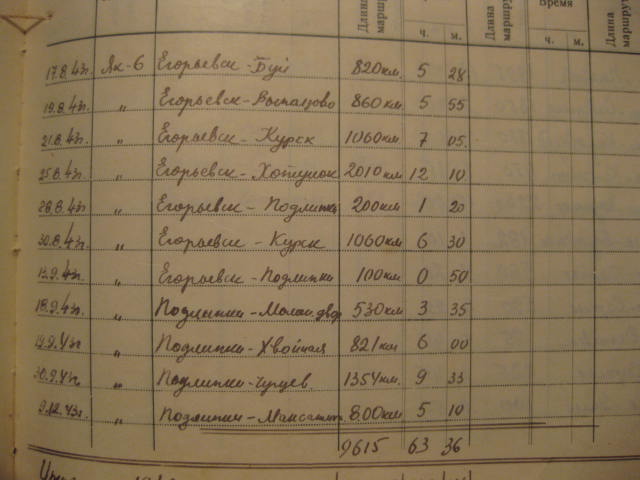 Длина маршру Время Длина маршру
ч. м. ч. м.
17.8.43г. Як-6 Егорьевск-Буй 820км. 5 28
19.8.43г. " Егорьевск- 860км. 5 55
21.8.43г. " Егорьевск-Курск 1060км 7 05.
25.8.43г. " Егорьевск-Хотунок 2010км 12 10
28.8.43г. " Егорьевск-Подлипки 200км. 1 20
30.8.43г. " Егорьевск-Курск 1060км 6 30
13.9.43г. " Егорьевск-Подлипки 100км. 0 50
18.9.43г. " Подлипки-Малай.двор 530км. 3 35
19.9.43г. " Подлипки-Хвойная 821км 6 00
30.9.43г. " Подлипки-Чугуев. 1354км. 9 33
9.12.43г. " Подлипки- 800км 5 10
9615 63 36